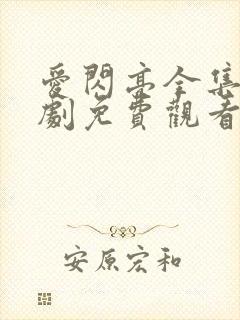 愛閃亮全集
劇免費觀看
安原宏和